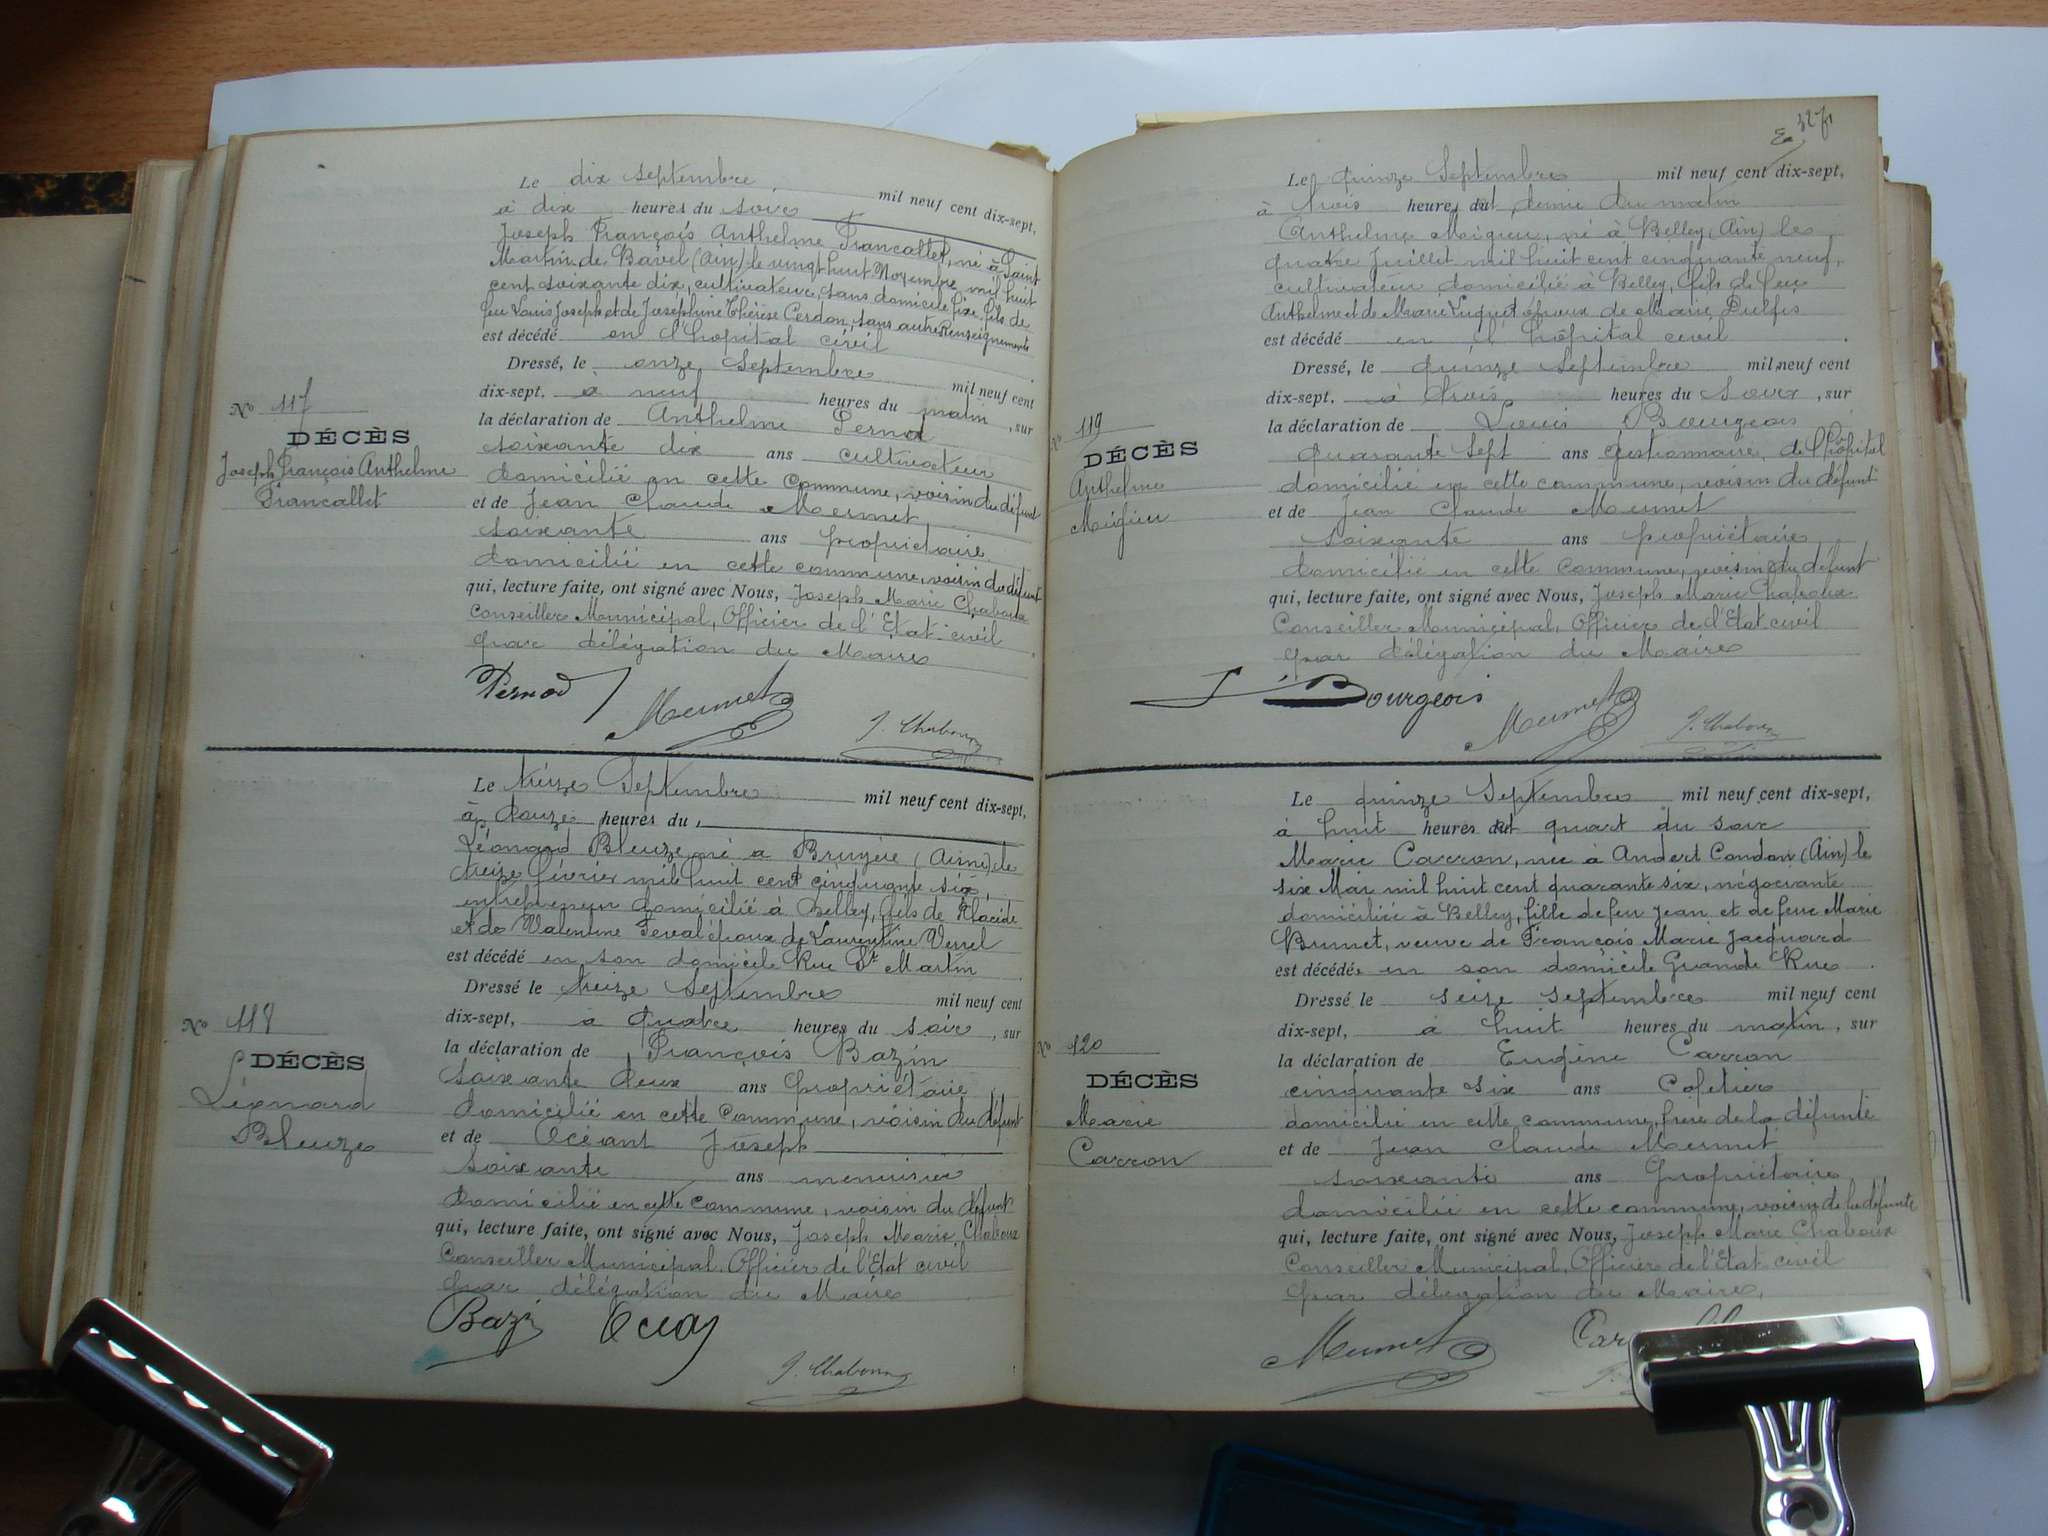 Le dix Septembre mil neuf cent dix-sept,
à dix heures du soir
Joseph François Anthelme Francallet, né à Saint
Martin de Bavel (Ain) le vingt huit Novembre mil huit
cent soixante dix, cultivateur, sans domicile fixe, fils de
feu Louis Joseph et de Joséphine Thérèse Cerdon, sans autres Renseignements
est décédé en l'hopital civil
Dressé, le onze Septembre mil neuf cent
dix-sept. à neuf heures du matin, sur
la déclaration de Anthelme Pernod
soixante dix ans cultivateur
domicilié en cette Commune, voisin du défunt
et de Jean Claude Mermet,
soixante ans propriétaire
domicilié en cette commune, voisin du défunt
qui, lecture faite, ont signé avec Nous, Joseph Marie Chaboux
Conseiller Municipal, Officier de l'Etat civil
par délégation du Maire
Pernod Mermet J. Chaboux
No 117
DÉCÈS
Joseph François Anthelme
Francallet
Le treize Septembre mil neuf cent dix-sept,
à douze heures du
Léonard Bleuze, né à Bruyère (Aisne) le
treize février mil huit cent cinquante six,
entrepreneur domicilié à Belley, fils de Placide
et de Valentine époux de Laurentine
est décédé en son domicile Rue St Martin
Dressé le treize Septembre mil neuf cent
dix-sept, à Quatre heures du soir, sur
la déclaration de François Bazin
soixante deux ans propriétaire
domicilié en cette Commune, voisin du défunt
et de Océant Joseph
soixante ans menuisier
domicilié en cette commune, voisin du défunt
qui, lecture faite, ont signé avec Nous, Joseph Marie Chaboux
Conseiller Municipal, Officier de l'Etat civil
par délégation du Maire
J. Chaboux
No 118
DÉCÈS
Léonard
Bleuze
Le quinze Septembre mil neuf cent dix-sept,
à trois heures et demie du matin
Anthelme Migieu, né à Belley (Ain) le
quatre Juillet mil huit cent cinquante neuf,
cultivateur domicilié à Belley, fils de feu
Anthelme et de Marie Luquet époux de Marie
est décédé en l'hôpital civil
Dressé, le quinze Septembre mil neuf cent
dix-sept. à trois heures du Soir, sur
la déclaration de Louis Bourgeois
quarante sept ans gestionnaire de l'hôpital
domicilié en cette commune, voisin du défunt
et de Jean Claude Mermet
soixante ans propriétaire
domicilié en cette Commune, voisin du défunt
qui, lecture faite, ont signé avec Nous, Joseph Marie Chaboux
Conseiller Municipal, Officier de l'Etat civil
par délégation du Maire
L Bourgeois Mermet J. Chaboux
No 119
DÉCÈS
Anthelme
Migieu
Le quinze Septembre mil neuf cent dix-sept,
à huit heures et quart du soir
Marie Carron, née à Andert Condon (Ain) le
six Mai mil huit cent quarante six, négociante
domiciliée à Belley, fille de feu Jean et de feue Marie
Brunet, veuve de François Marie Jacquard
est décédée en son domicile Grande Rue
Dressé le seize septembre mil neuf cent
dix-sept, à huit heures du matin, sur
la déclaration de Eugène Carron
cinquante six ans Cafetier
domicilié en cette commune, frère de la défunte
et de Jean Claude Mermet
soixante ans Propriétaire
domicilié en cette commune, voisin de la défunte
qui, lecture faite, ont signé avec Nous, Joseph Marie Chaboux
Conseiller Municipal, Officier de l'Etat civil
par délégation du Maire,
Mermet
No 120
DÉCÈS
Marie
Carron